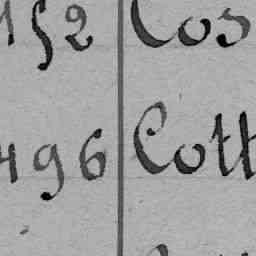 152 Cos
496 Cott